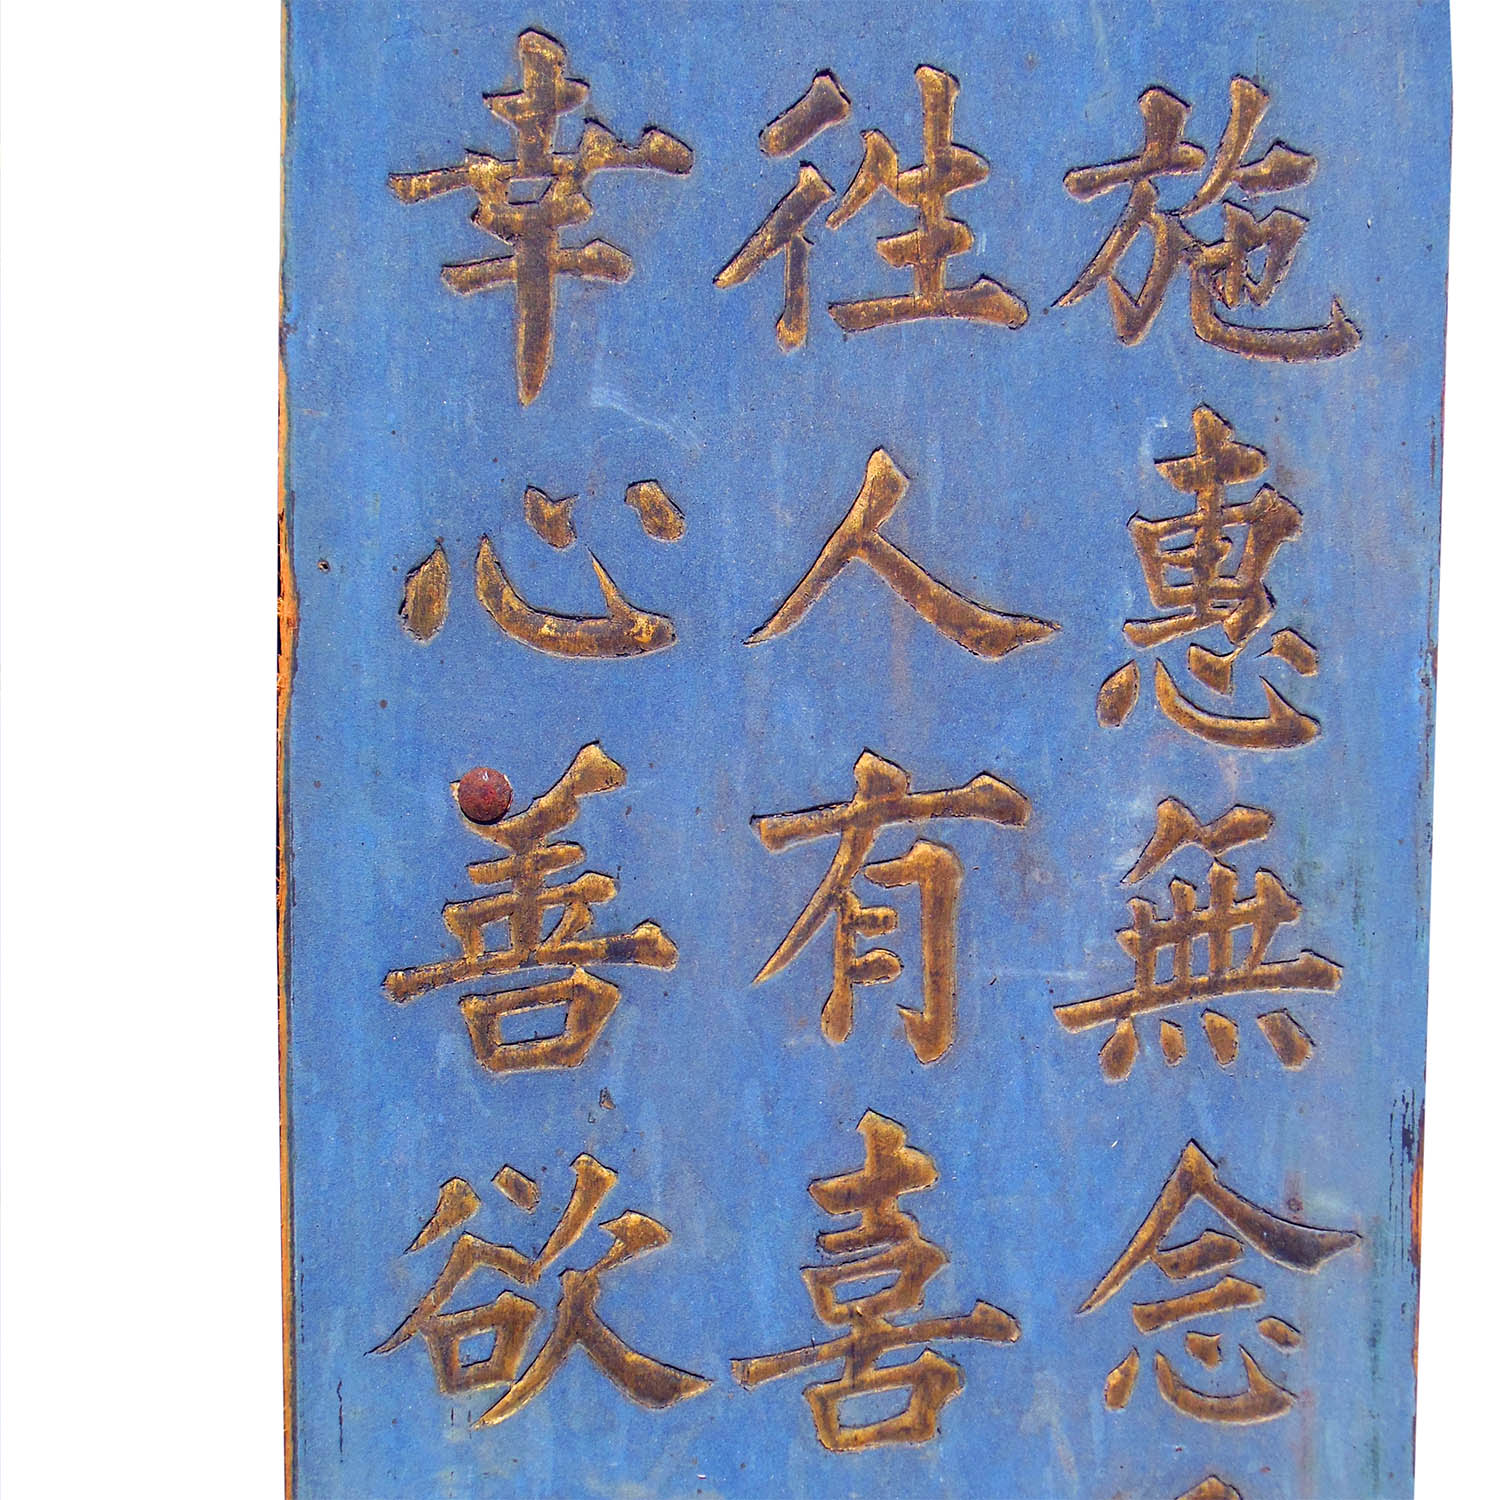 施惠無念
徃人有喜
幸心善欲